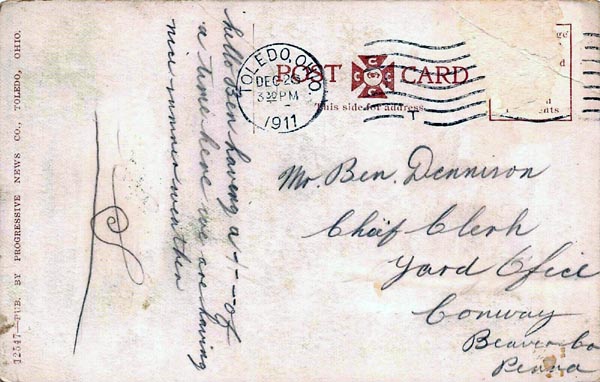 12547—PUB. BY PROGRESSIVE NEWS CO., TOLEDO, OHIO.
hello Ben having a +--- of
a time here we are having
nice summer weather
TOLEDO, OHIO.
DEC 26
3 30 PM
1911
POST CARD
C C C C
This side for address.
T
Mr. Ben. Dennison
Cheif Clerk
Yard Office
Conway
Beaver Co
Penna